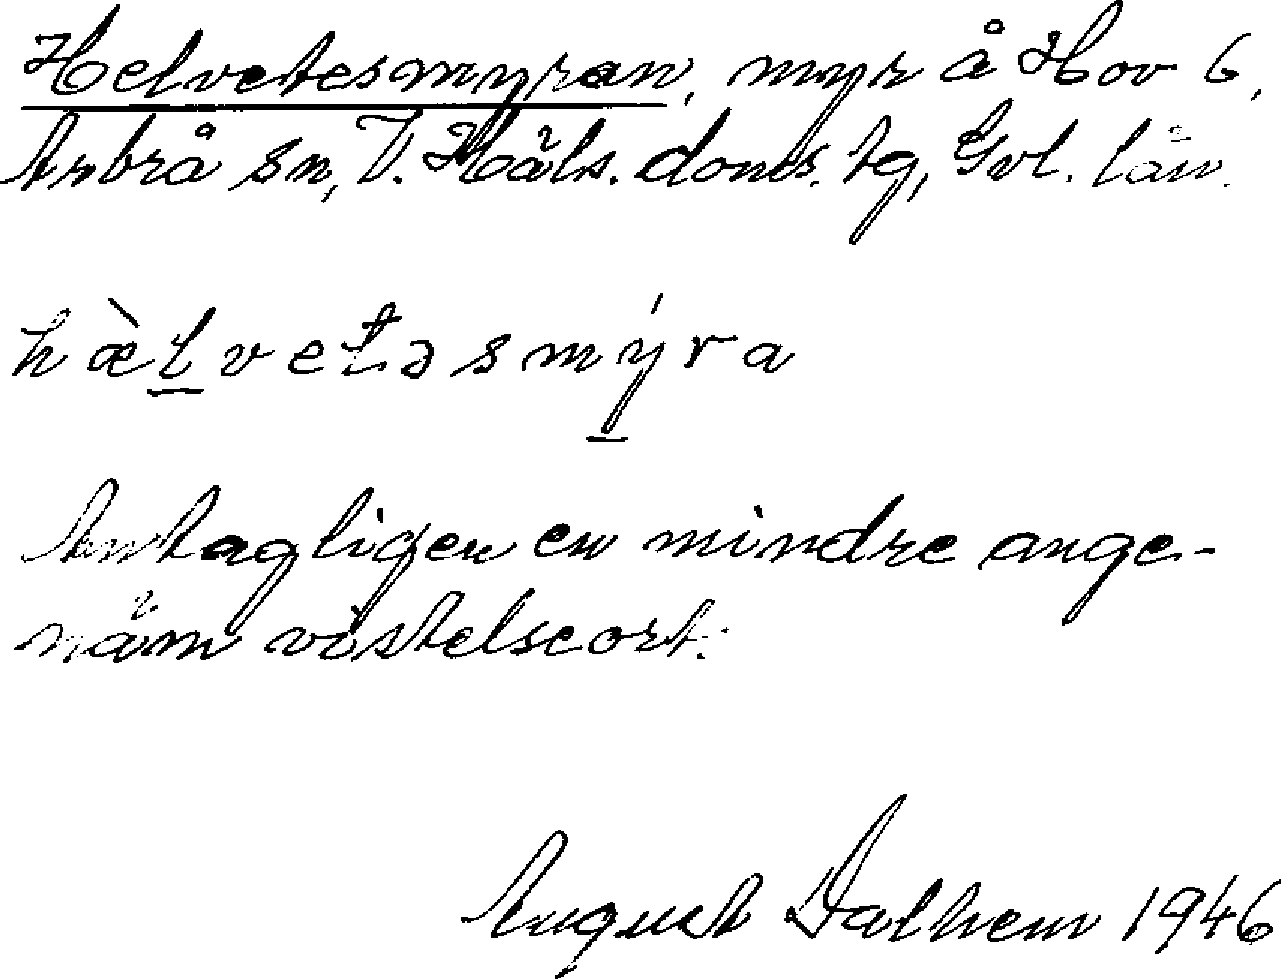 Helvetesmyran, myr å Hov 6,
Arbrå sn, V. Häls. doms. tg, Gvl. län.
hæ̀l̲vetəsmý̲ra
Antagligen en mindre ange-
näm vistelseort.
August Dalhem 1946